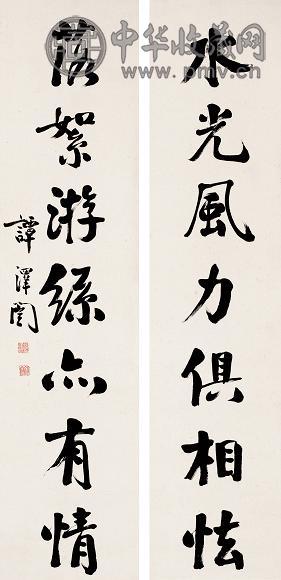 中华收藏网
www.pmv.cn
水光風力俱相怯
落絮游絲亦有情
譚澤闓